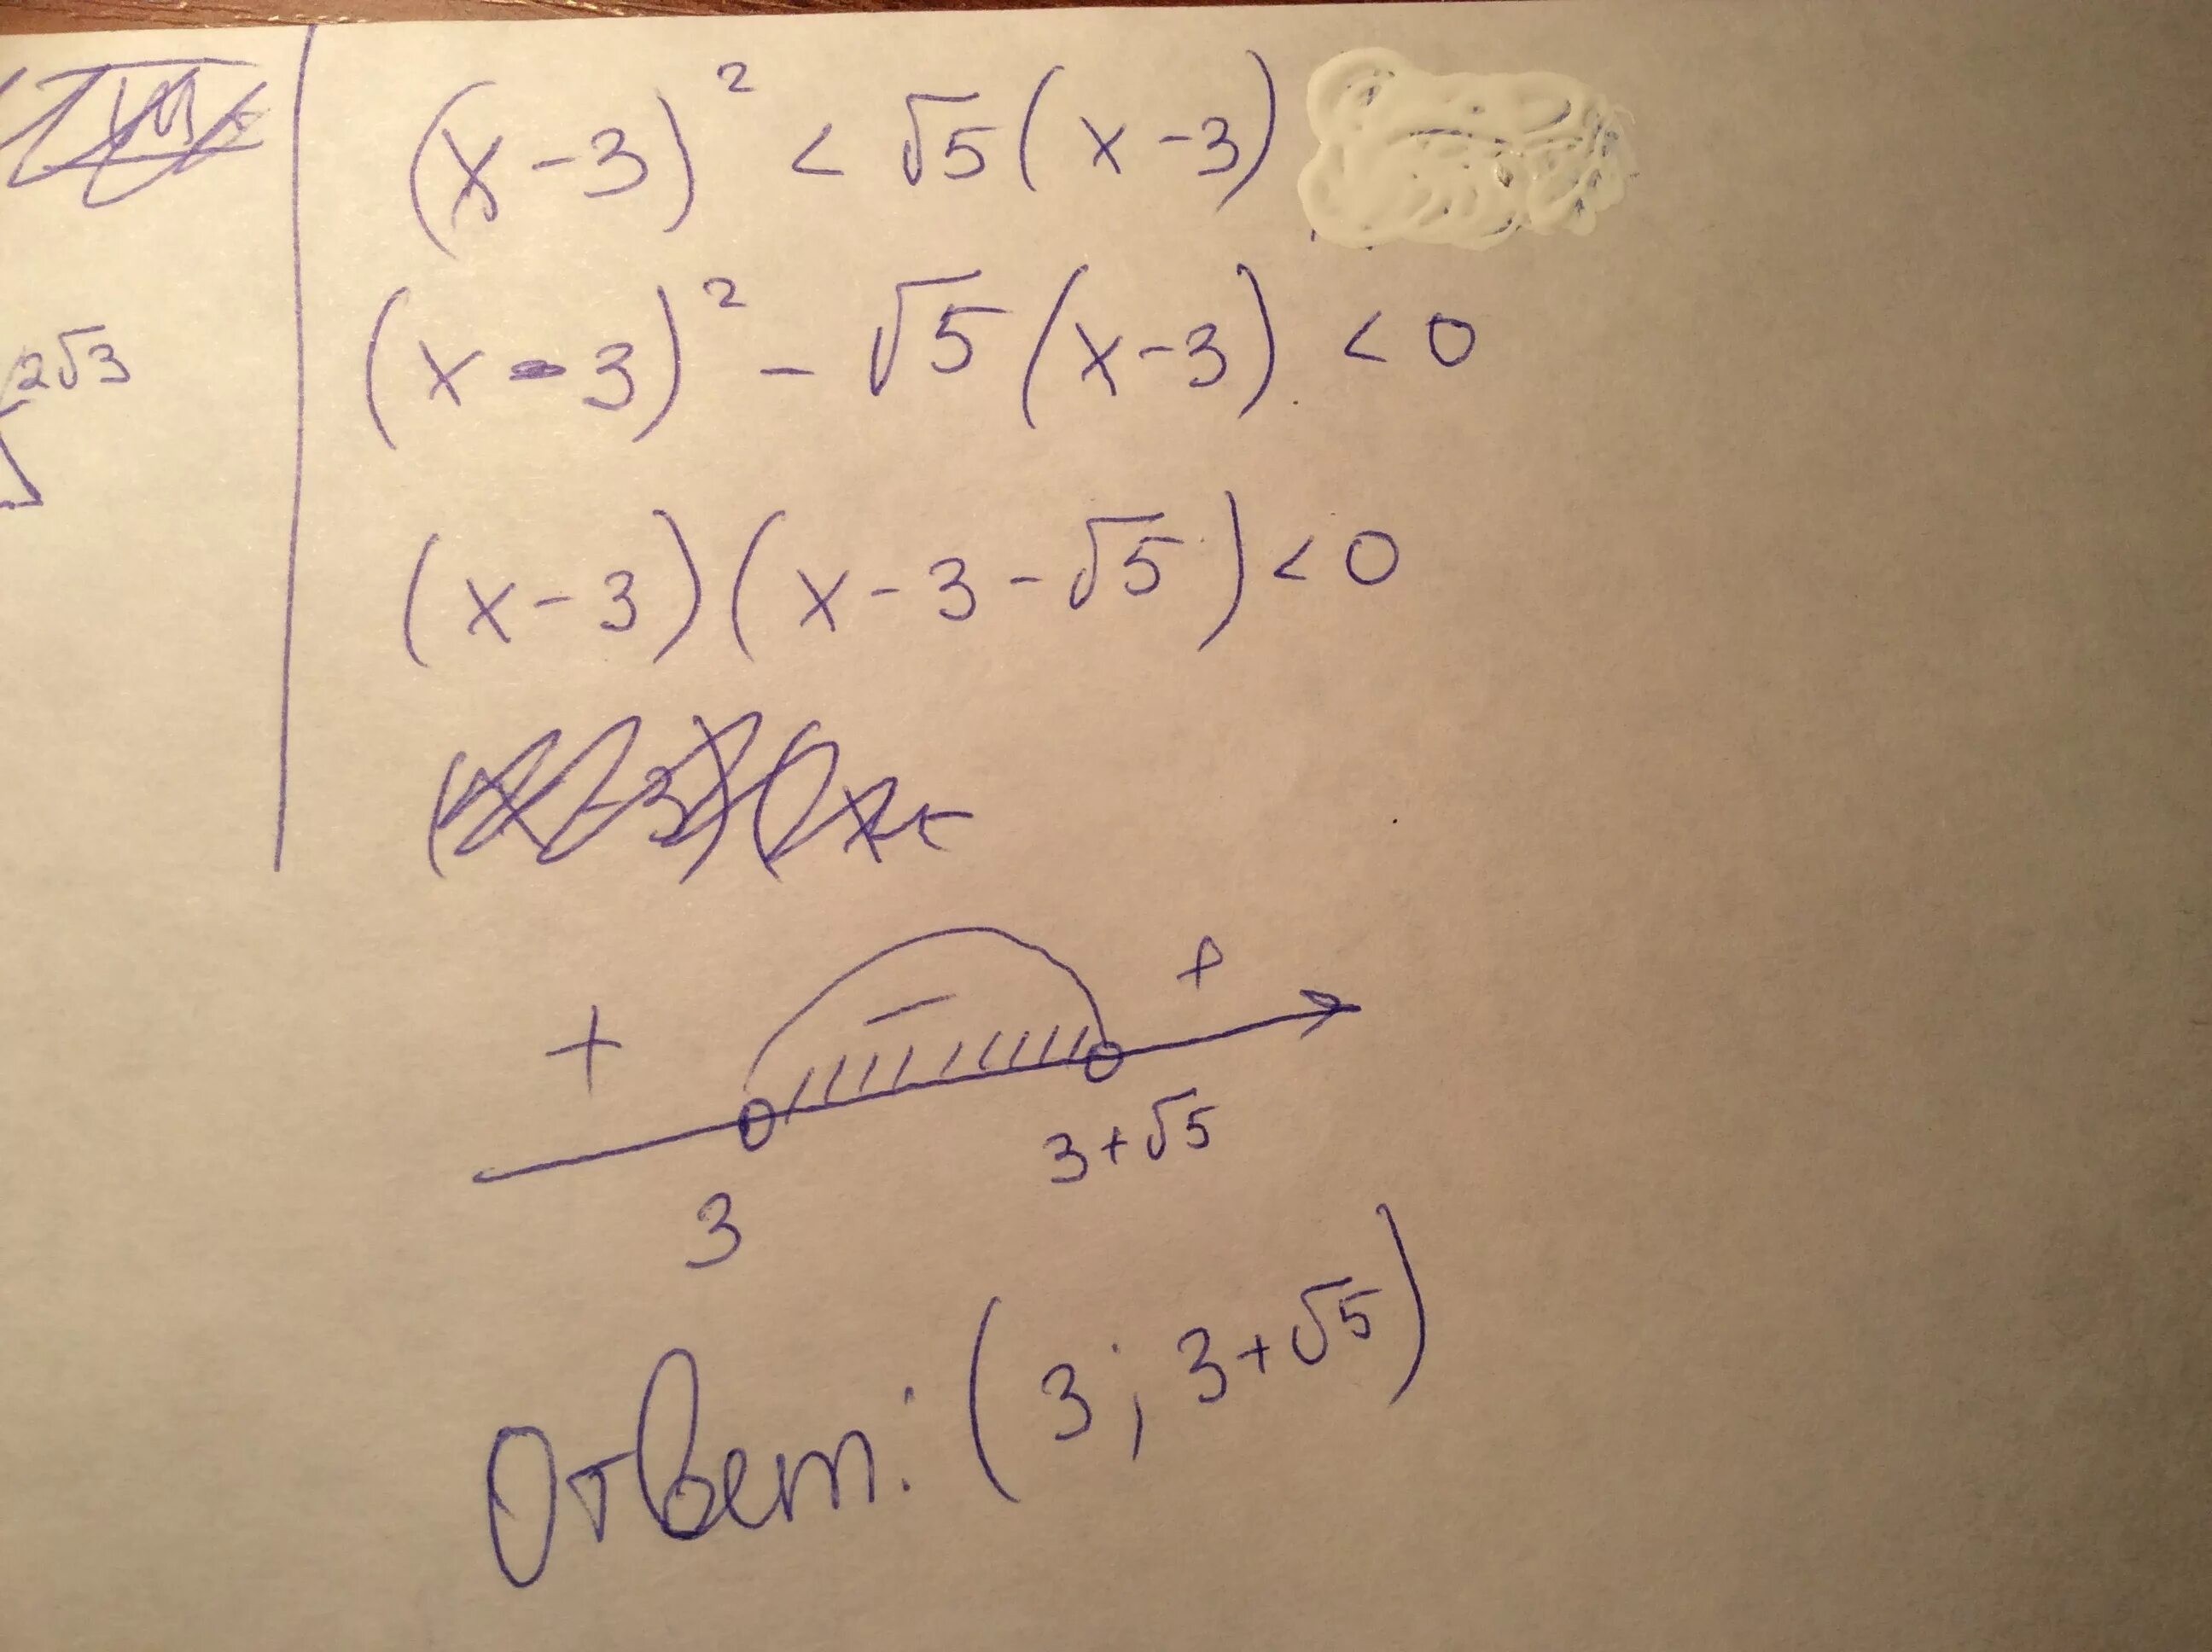 (x-3)² < √5(x-3)
2√3
(x-3)² - √5(x-3) < 0
(x-3)(x-3-√5) < 0
+ − +
3 3+√5
Ответ: (3; 3+√5)